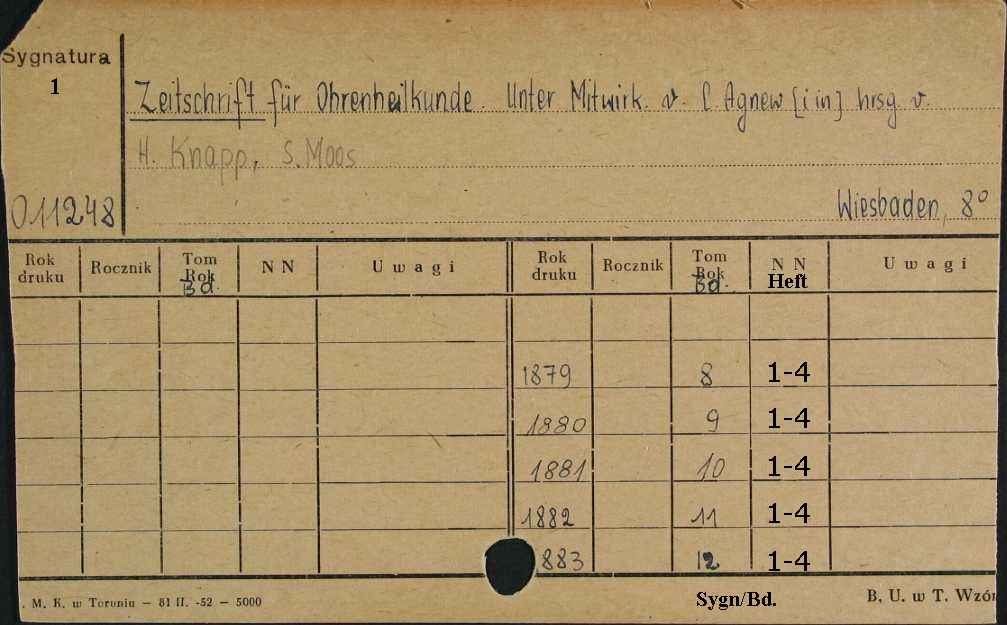 Sygnatura
1
011248
Zeitschrift für Ohrenheilkunde. Unter Mitwirk. v. C. Agnew [i in] hrsg v.
H. Knapp, S. Moos
Wiesbaden, 8°
Rok druku Rocznik Tom Rok Bd. N N Uwagi Rok druku Rocznik Tom Rok Bd. N N Heft Uwagi
1879 8 1-4
1880 9 1-4
1881 10 1-4
1882 11 1-4
883 12 1-4
. M. K. w Toruniu — 81 II. -52 — 5000 Sygn/Bd. B. U. w T. Wzór